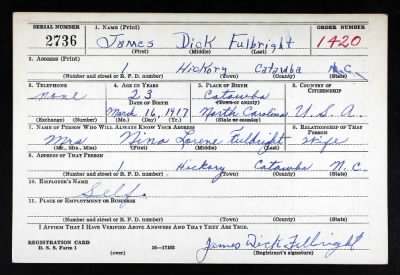 SERIAL NUMBER 1. NAME (Print) ORDER NUMBER
2736 James Dick Fulbright 1420
(First) (Middle) (Last)
2. ADDRESS (Print)
1 Hickory Catawba N.C.
(Number and street or R. F. D. number) (Town) (County) (State)
3. TELEPHONE 4. AGE IN YEARS 5. PLACE OF BIRTH 6. COUNTRY OF CITIZENSHIP
none 23 Catawba
DATE OF BIRTH (Town or county)
March 16, 1917 North Carolina U.S.A.
(Exchange) (Number) (Mo.) (Day) (Yr.) (State or country)
7. NAME OF PERSON WHO WILL ALWAYS KNOW YOUR ADDRESS 8. RELATIONSHIP OF THAT PERSON
Mrs Nina Lorene Fulbright wife
(Mr., Mrs., Miss) (First) (Middle) (Last)
9. ADDRESS OF THAT PERSON
1 Hickory Catawba N.C.
(Number and street or R. F. D. number) (Town) (County) (State)
10. EMPLOYER'S NAME
Self.
11. PLACE OF EMPLOYMENT OR BUSINESS
(Number and street or R. F. D. number) (Town) (County) (State)
I AFFIRM THAT I HAVE VERIFIED ABOVE ANSWERS AND THAT THEY ARE TRUE.
REGISTRATION CARD James Dick Fulbright
D. S. S. Form 1 (over) 16—17105 (Registrant's signature)